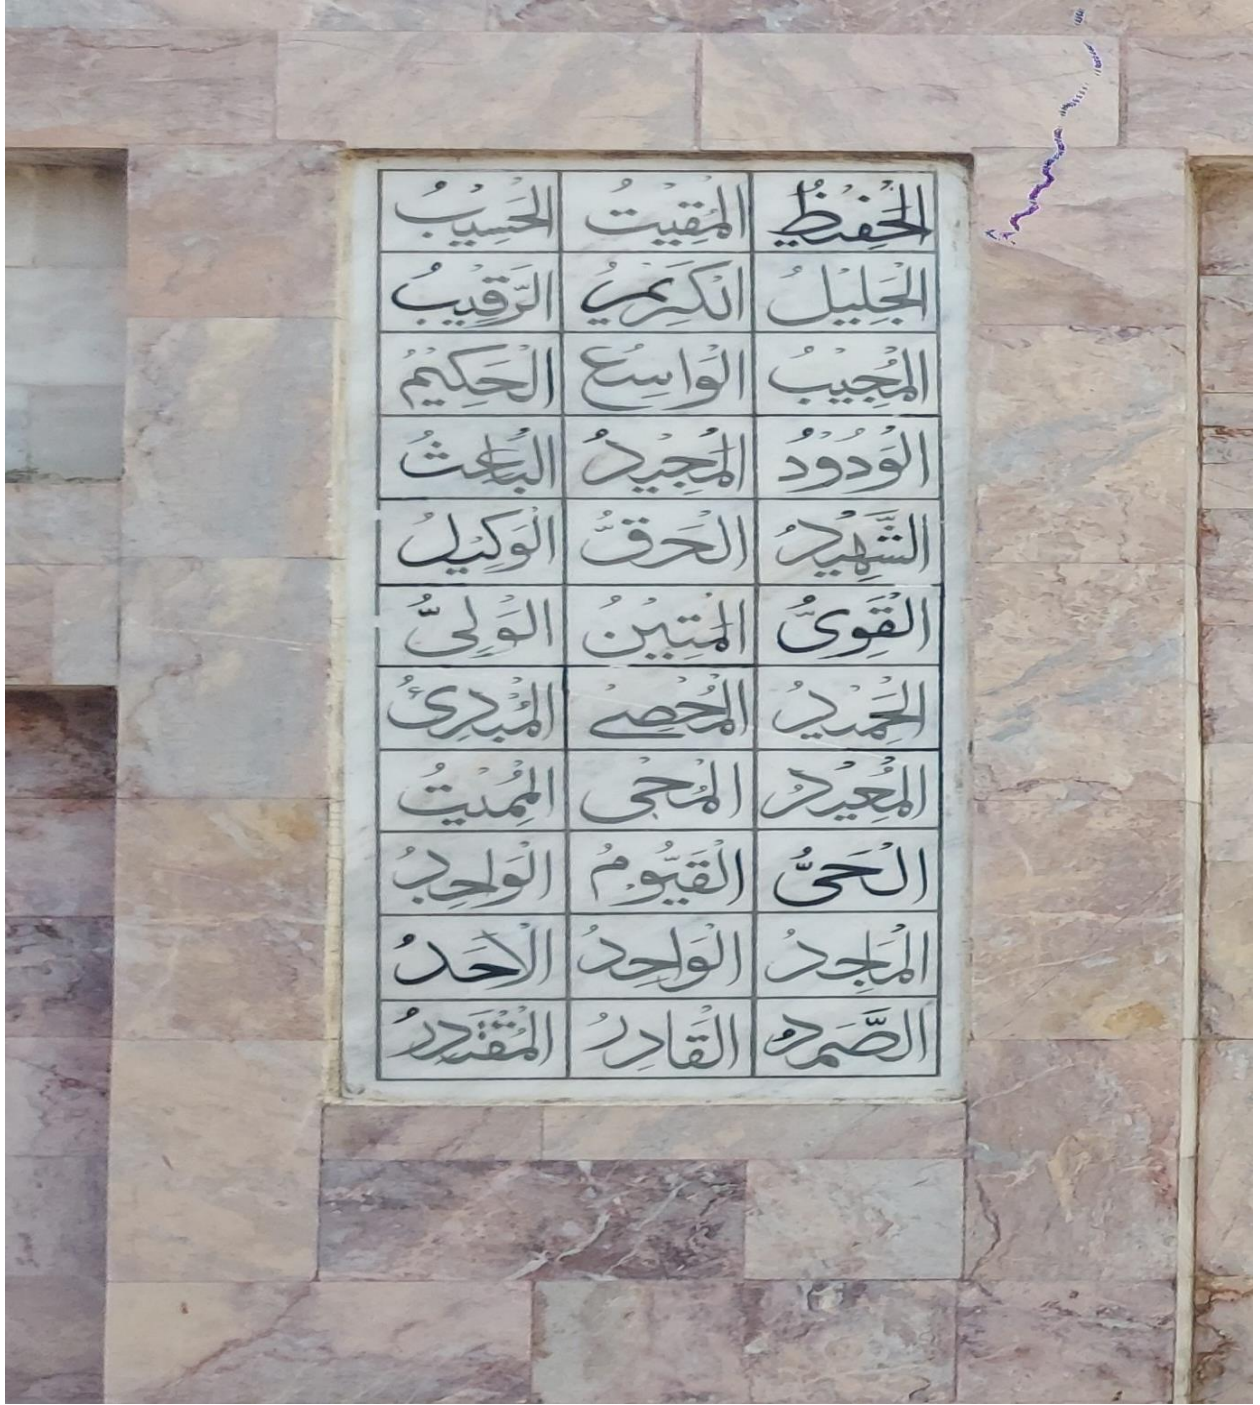 الْحَفِيْظُ الْمُقِيْتُ الْحَسِيْبُ
الْجَلِيْلُ الْكَرِيْمُ الرَّقِيْبُ
الْمُجِيْبُ الْوَاسِعُ الْحَكِيْمُ
الْوَدُوْدُ الْمَجِيْدُ الْبَاعِثُ
الشَّهِيْدُ الْحَقُّ الْوَكِيْلُ
الْقَوِىُّ الْمَتِيْنُ الْوَلِىُّ
الْحَمِيْدُ الْمُحْصِے الْمُبْدِئُ
الْمُعِيْدُ الْمُحْىِ الْمُمِيْتُ
الْحَىُّ الْقَيُّوْمُ الْوَاجِدُ
الْمَاجِدُ الْوَاحِدُ الْاَحَدُ
الصَّمَدُ الْقَادِرُ الْمُقْتَدِرُ